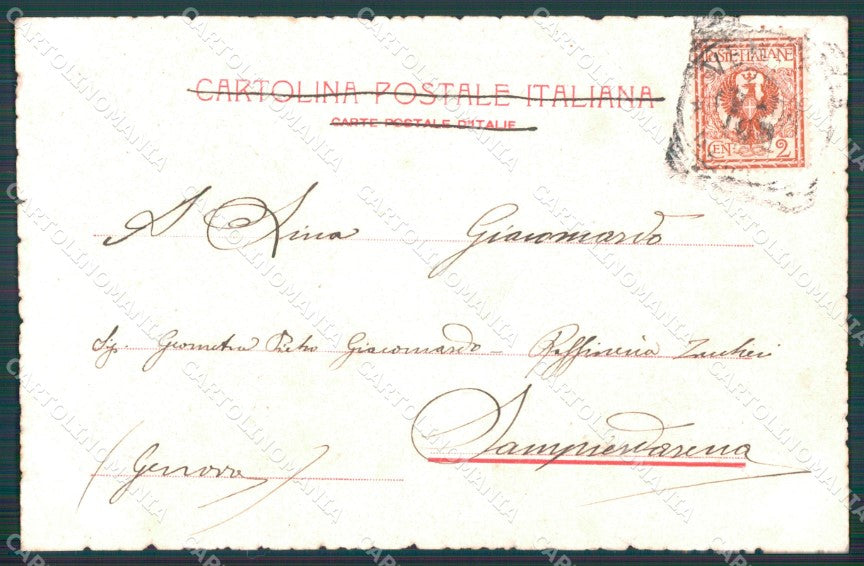 CARTOLINA POSTALE ITALIANA
CARTE POSTALE D'ITALIE
POSTE ITALIANE
CEN. 2
A Nina Giacomardo
Sig. Geometra Pietro Giacomardo - Raffineria Zuccheri
Sampierdarena
(Genova)
CARTOLINOMANIA